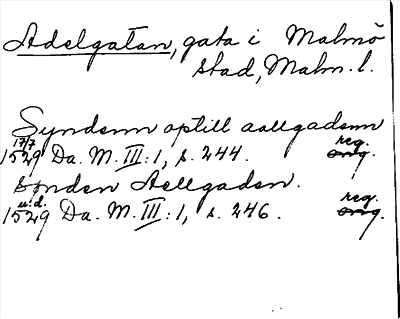 Adelgatan, gata i Malmö
stad, Malm. l.
Syndenn optill aallgadenn
17/7 reg.
1529 Da. M. III: 1, s. 244. orig.
sønden Aellgaden.
u.d. reg.
1529 Da. M. III: 1, s. 246. orig.